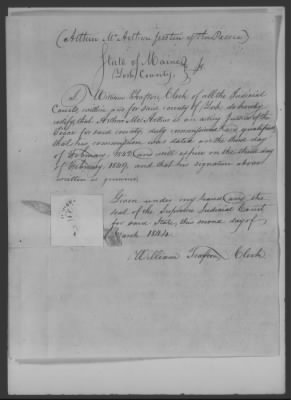 (Arthur McArthur Justice of the Peace)
State of Maine
York County.
I William Trafton, Clerk of all the Judicial
Courts within and for said county of York do hereby
certify that Arthur McArthur is an acting Justice of the
Peace for said county, duly commissioned and qualified
that his commission was dated on the third day
of February, 1842 and will expire on the third day
of February, 1849, and that his signature above
written is genuine.
Given under my hand and the
seal of the Supreme Judicial Court
for said State, this second day of
March 1844.
William Trafton Clerk